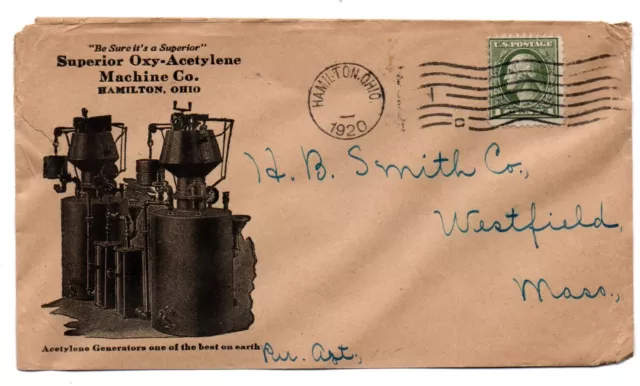 "Be Sure it's a Superior"
Superior Oxy-Acetylene
Machine Co.
HAMILTON, OHIO
HAMILTON, OHIO
1920
U.S. POSTAGE
H. B. Smith Co.,
Westfield,
Mass.,
Pur. Agt.,
Acetylene Generators one of the best on earth